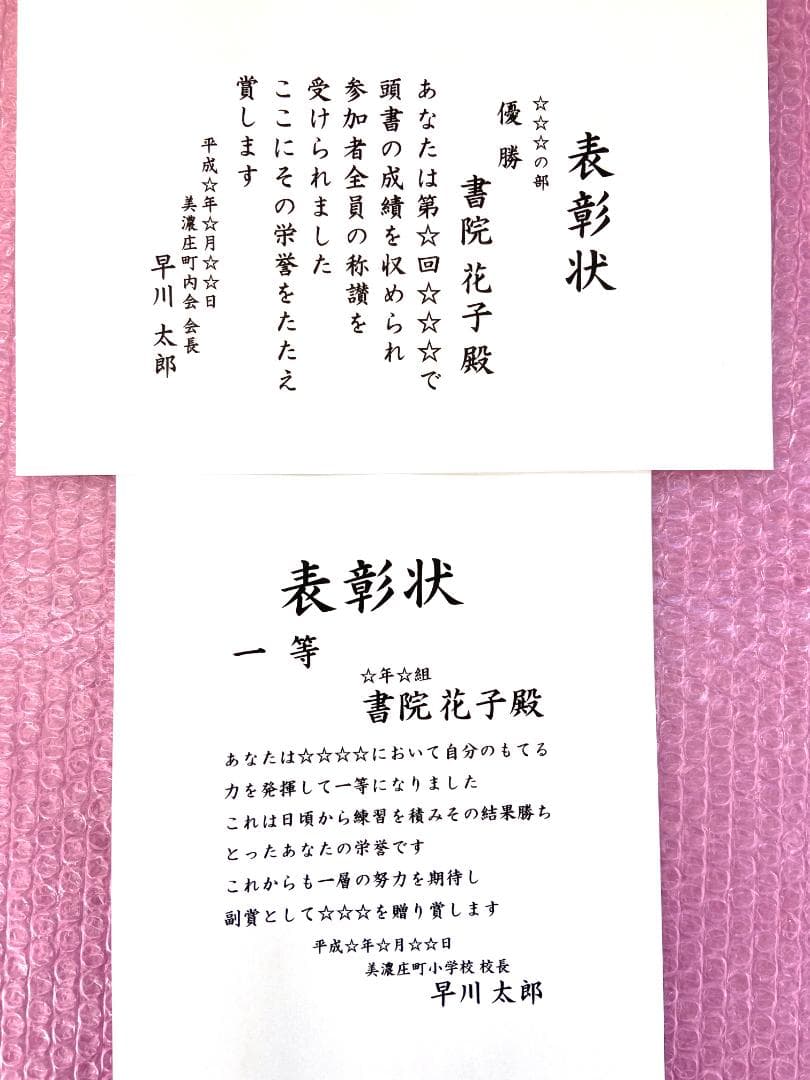 表彰状
☆☆☆の部
優勝
書院 花子 殿
あなたは第☆回☆☆☆で
頭書の成績を収められ
参加者全員の称讃を
受けられました
ここにその栄誉をたたえ
賞します
平成☆年☆月☆☆日
美濃庄町内会 会長
早川 太郎
表彰状
一 等
☆年☆組
書院 花子殿
あなたは☆☆☆☆において自分のもてる
力を発揮して一等になりました
これは日頃から練習を積みその結果勝ち
とったあなたの栄誉です
これからも一層の努力を期待し
副賞として☆☆☆を贈り賞します
平成☆年☆月☆☆日
美濃庄町小学校 校長
早川 太郎